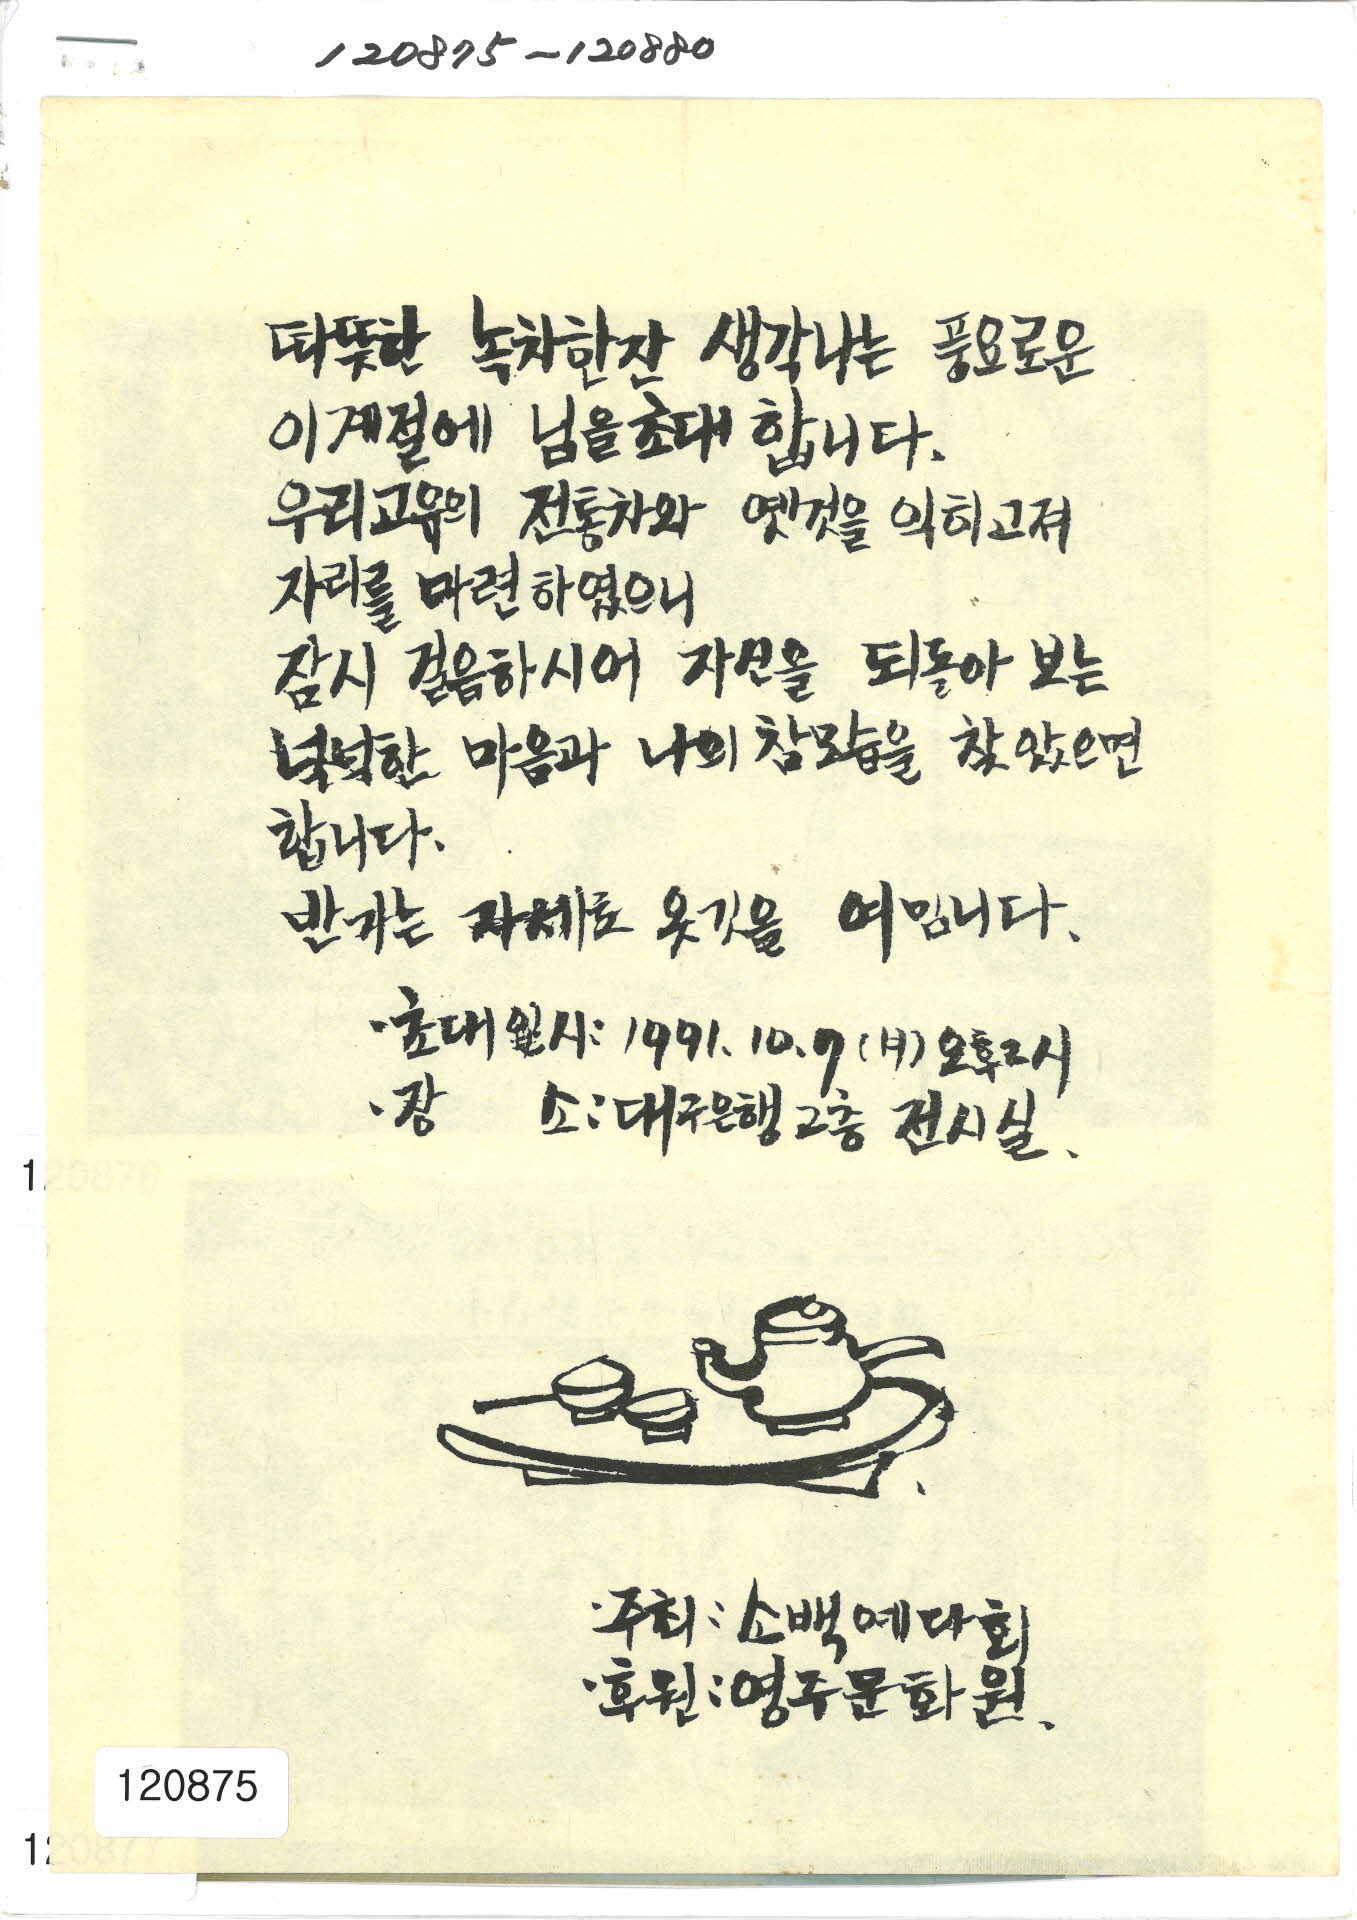 120875~120880
따뜻한 녹차한잔 생각나는 풍요로운
이계절에 님을초대 합니다.
우리고유의 전통차와 옛것을 익히고져
자리를 마련하였으니
잠시 걸음하시어 자신을 되돌아 보는
넉넉한 마음과 나의 참모습을 찾았으면
합니다.
반기는 자세로 옷깃을 여밉니다.
·초대일시: 1991. 10. 7 (月) 오후2시
·장 소: 대구은행 2층 전시실.
120876
·주최: 소백예다회
·후원: 영주문화원.
120875
120877